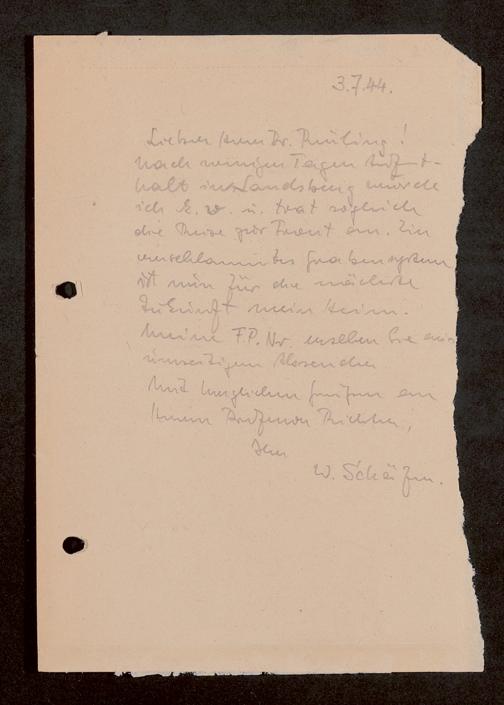 3.7.44.
Lieber Herr Dr. Reuling!
Nach wenigen Tagen Aufent-
halt in Landsberg wurde
ich k. v. u. trat sogleich
die Reise zur Front an. Ein
verschlammtes Grabensystem
ist nun für die nächste
Zukunft mein Heim.
Meine F.P. Nr. ersehen Sie aus
umseitigem Absender
Mit herzlichen Grüßen an
Herrn Professor Richter,
Ihr
W. Schäfer.